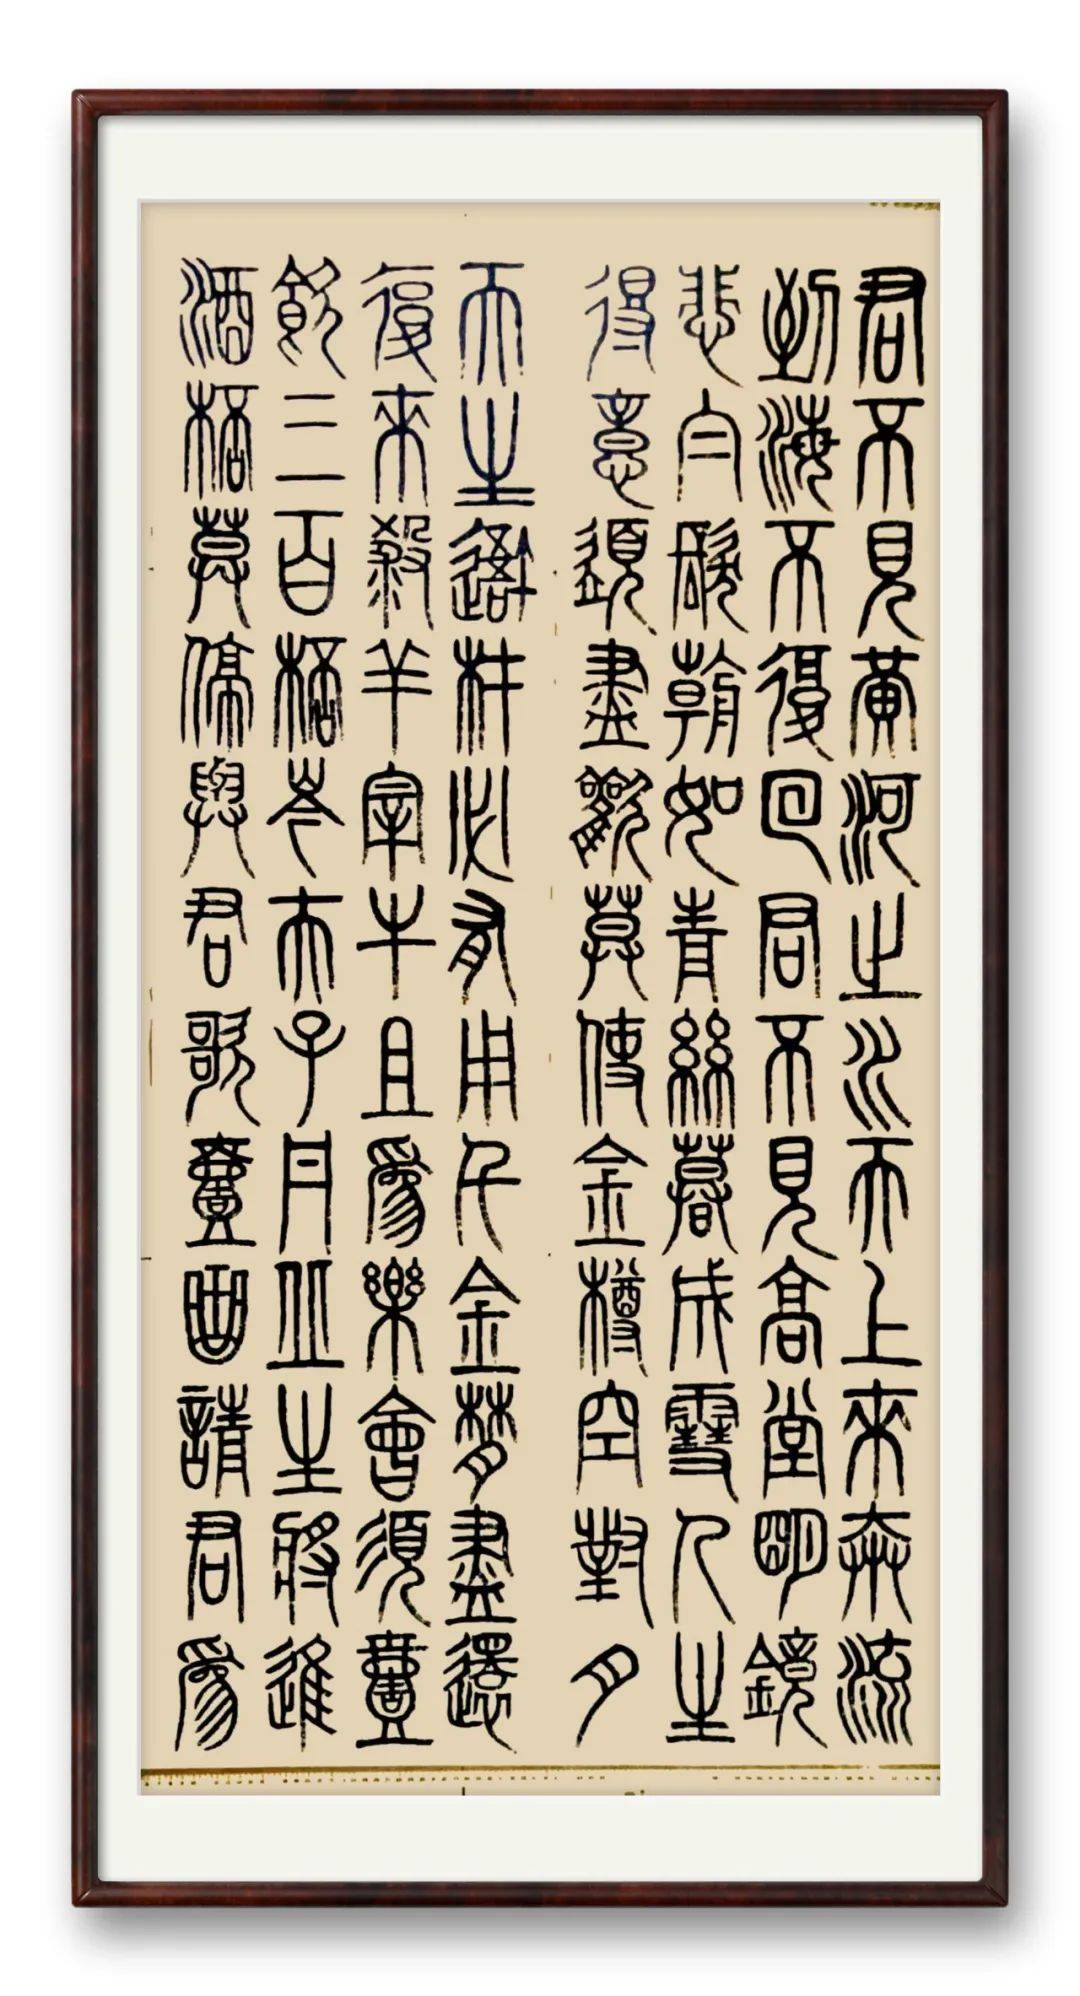 君不見黃河之水天上來奔流
到海不復回君不見高堂明鏡
悲白髮朝如青絲暮成雪人生
得意須盡歡莫使金樽空對月
天生材必有用千金散盡還
復來殺羊宰牛且為樂會須壹
飲三百桮岑夫子丹丘生將進
酒桮莫停與君歌壹曲請君為